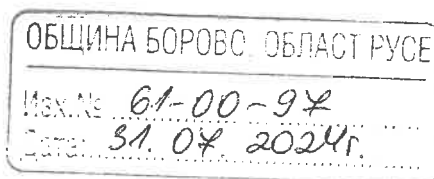 ОБЩИНА БОРОВО, ОБЛАСТ РУСЕ
Изх.№ 61-00-97
Дата: 31.07.2024г.